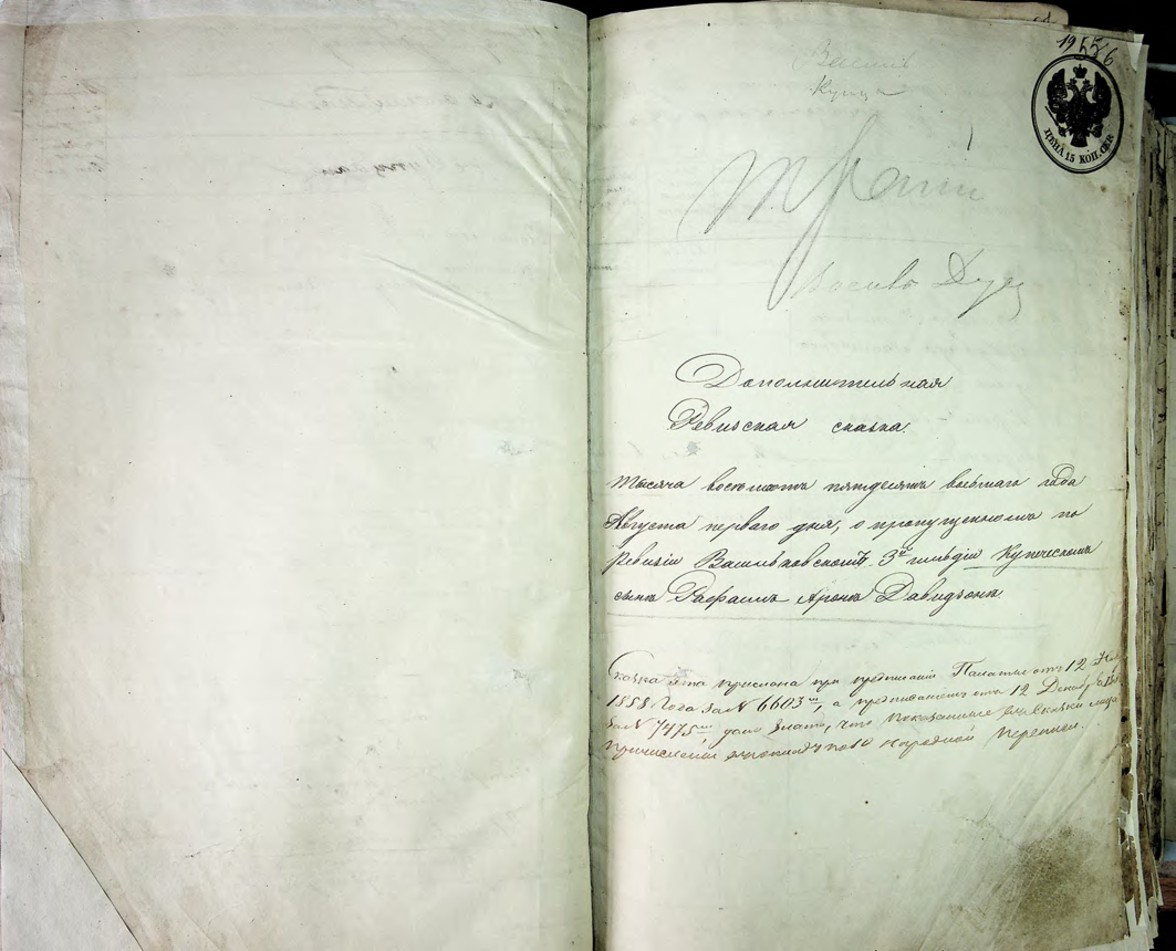 19 556
ЦѢНА 15 КОП. СЕР.
Васильк
Купцы
Дополнительная
Ревизская сказка.
Тысяча восемьсотъ пятьдесятъ восьмаго года
Августа перваго дня, о пропущенномъ по
Ревизіи Васильковскомъ 3й гильдіи Купческомъ
сынѣ Рафаилѣ Аронѣ Давидзонѣ.
Сказка эта прислана при предписаніи Палаты отъ 12
1858 Года за N 6603м, а предписаніемъ отъ 12 Декабр
за N 7475м, дано знать, что показанные въ сказки
причислены по 10 народной переписи.